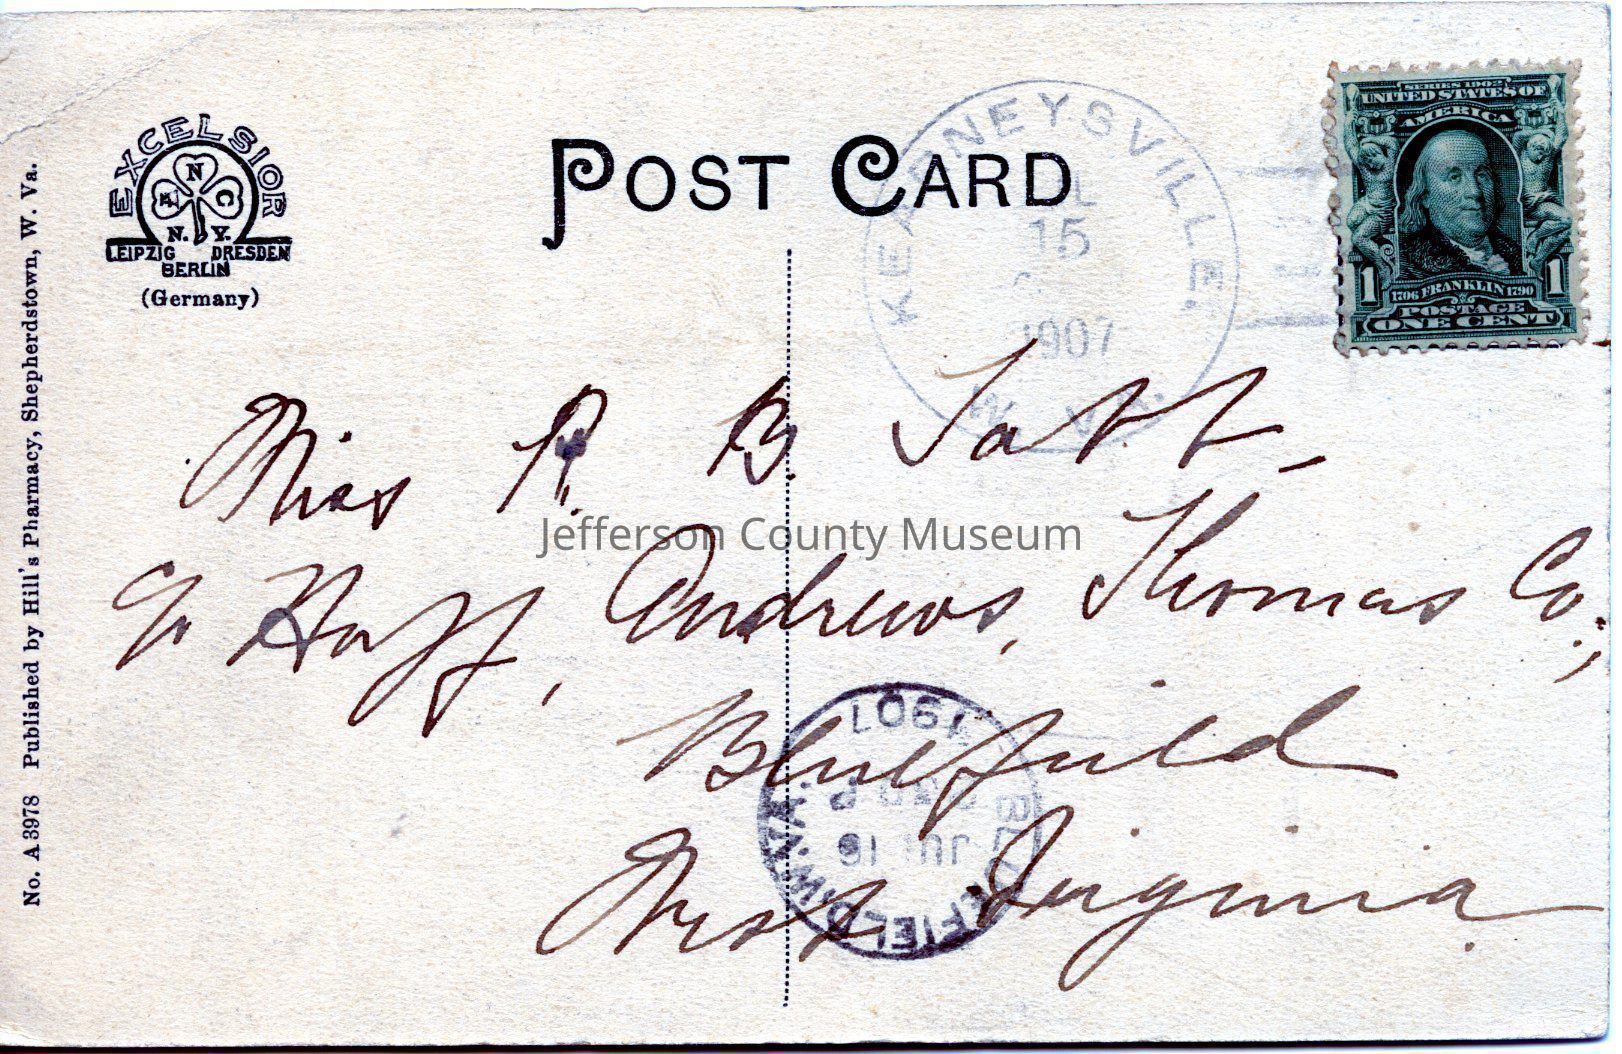 EXCELSIOR
A N C
N. Y.
LEIPZIG DRESDEN
BERLIN
(Germany)
POST CARD
KEARNEYSVILLE.
15
1907
W. VA.
SERIES 1902
UNITED STATES OF
AMERICA
1 1
1706 FRANKLIN 1790
POSTAGE
ONE CENT
Miss R. B. Tatt
c/o Huff, Andrews, Thomas Co.,
Bluefield
West Virginia
Jefferson County Museum
BLUEFIELD, W. VA.
JUL 16
1907
No. A 3978 Published by Hill's Pharmacy, Shepherdstown, W. Va.